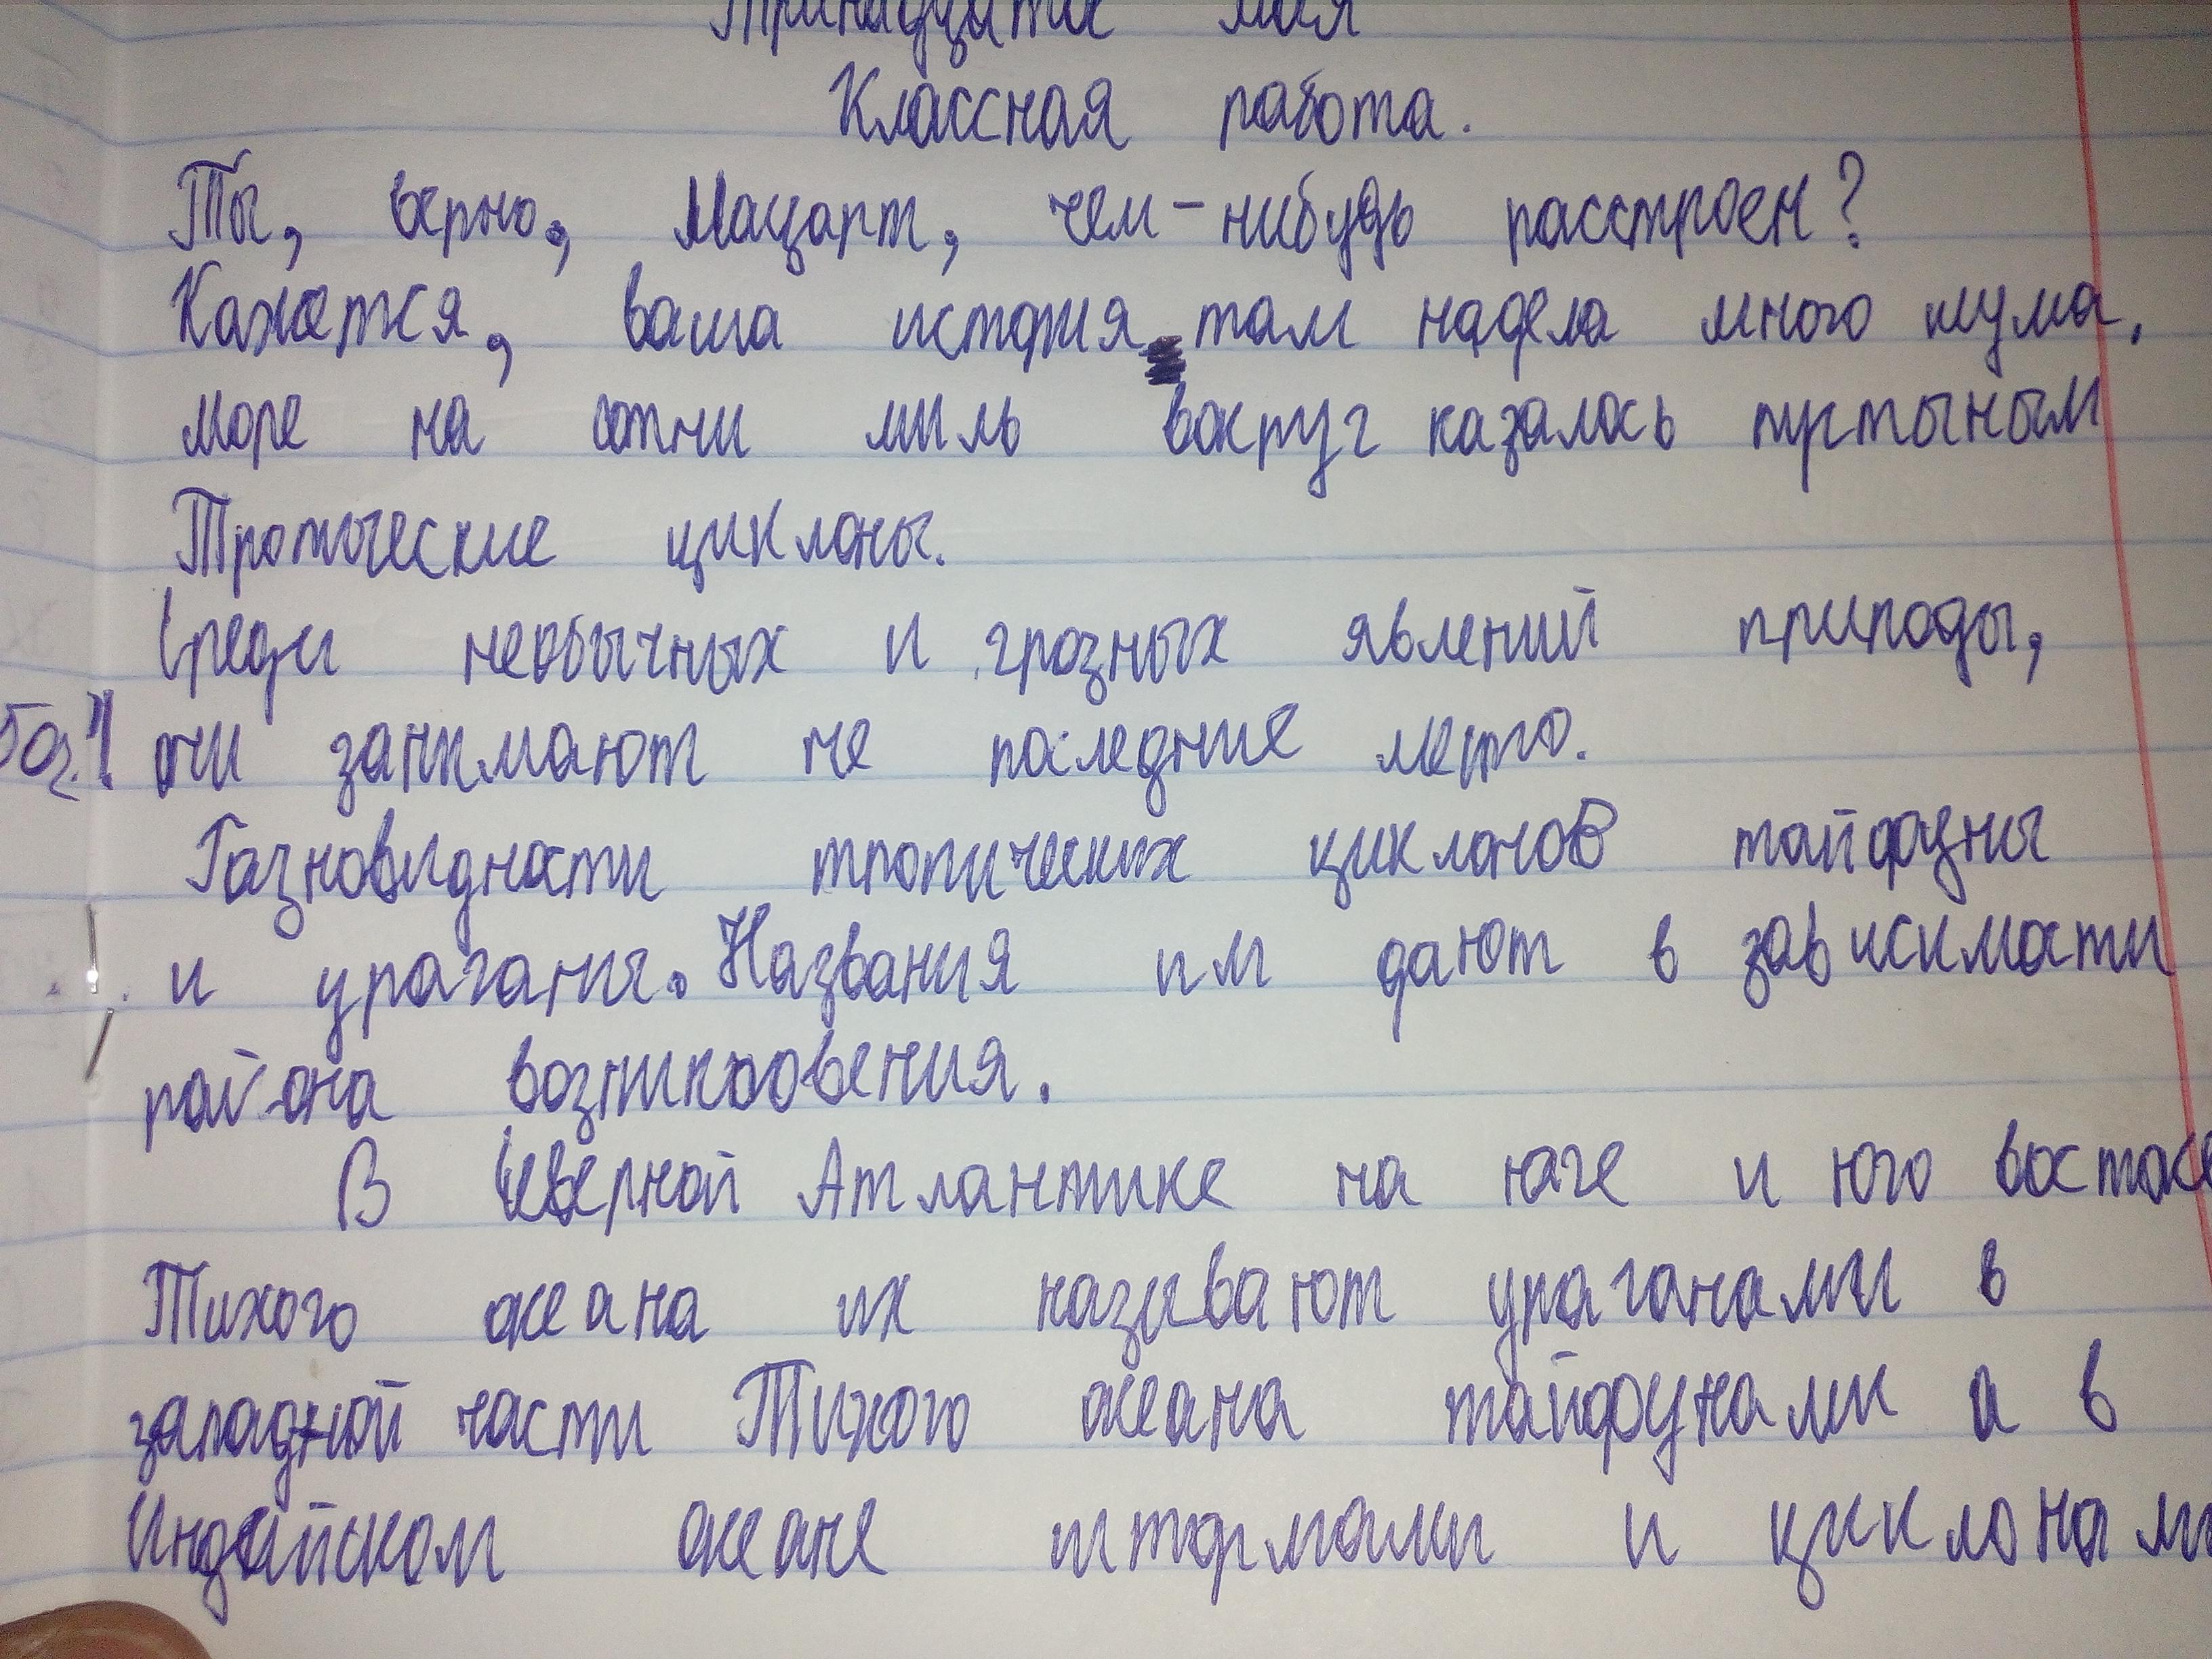 Тринадцатое мая
Классная работа.
Ты, верно, Мацарт, чем-нибудь расстроен?
Кажется, ваша история там надела много шума.
море на сотни миль вокруг казалось пустыным
Тропические циклоны.
Среди необычных и грозных явлений природы,
они занимают не последние место.
Разновидности тропических циклонов тайфуны
и ураганы. Названия им дают в зависимасти
района возникновения.
В Северной Атлантике на юге и юго востоке
Тихого океана их называют ураганами в
западной части Тихого океана тайфунами а в
Индейском океане штормами и циклонами